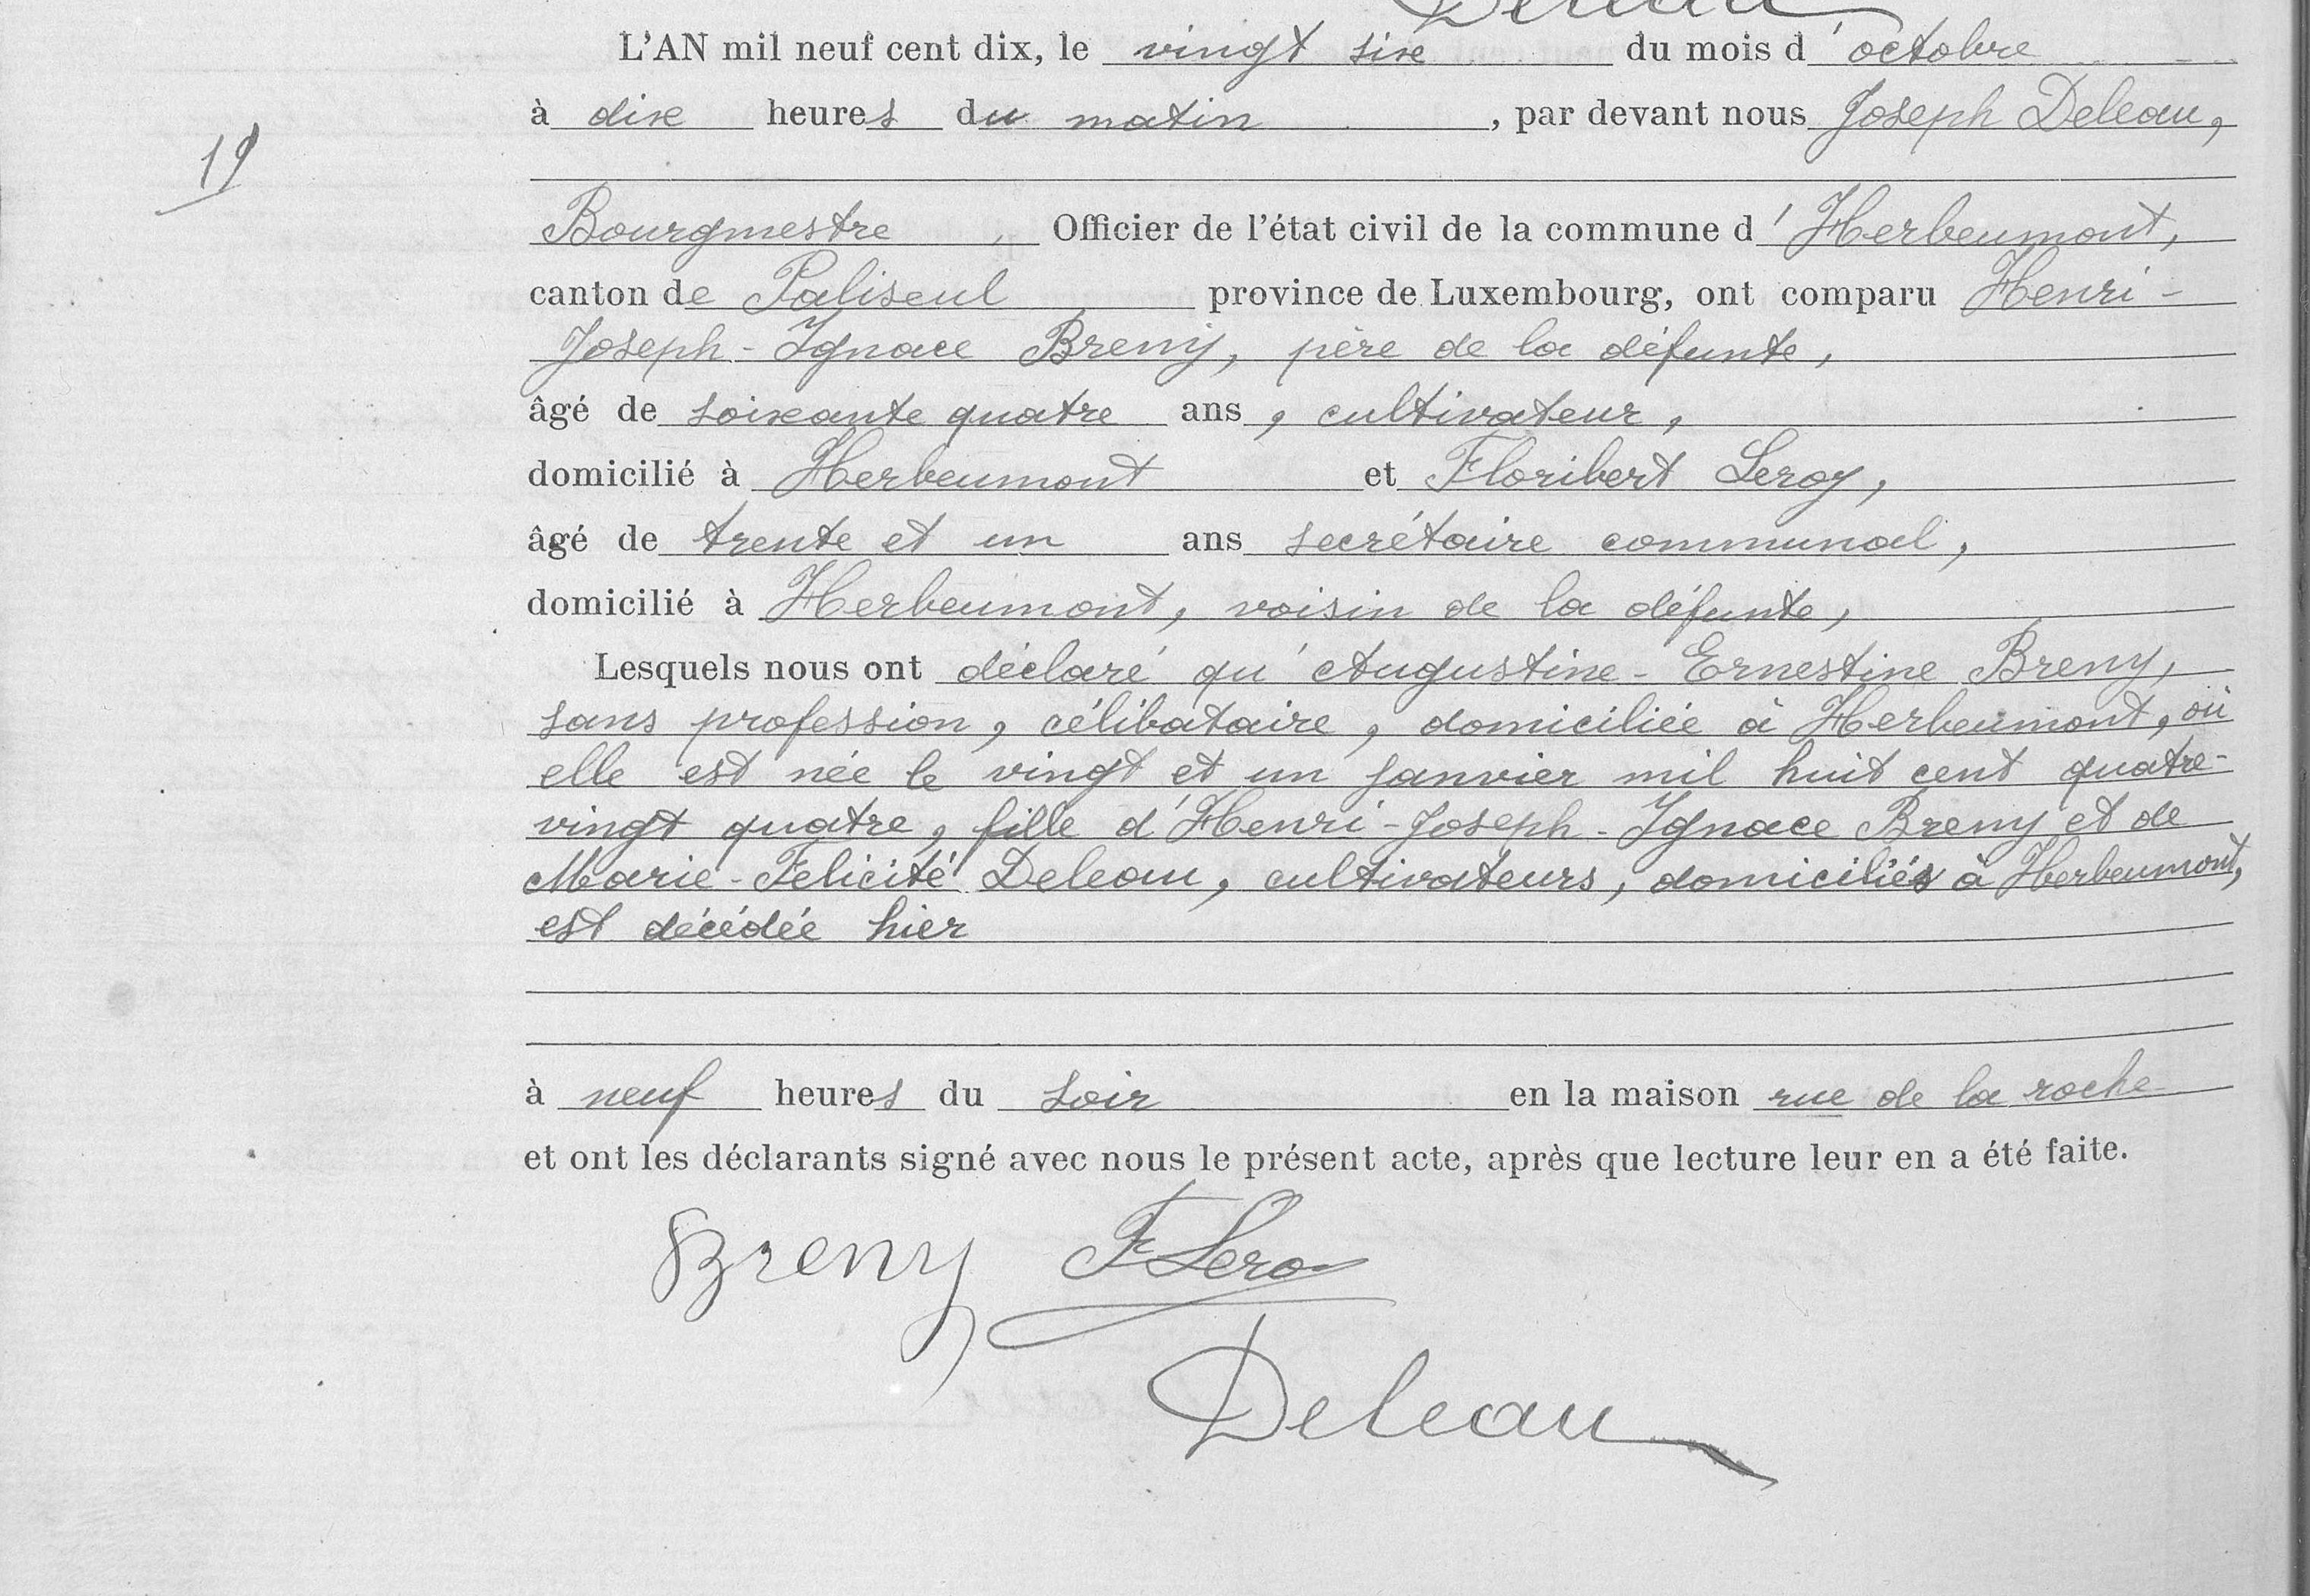 L'AN mil neuf cent dix, le vingt six du mois d'octobre
à dix heures du matin, par devant nous Joseph Deleau,
19
Bourgmestre, Officier de l'état civil de la commune d'Herbeumont,
canton de Paliseul province de Luxembourg, ont comparu Henri-
Joseph-Ignace Breny, père de la défunte,
âgé de soixante quatre ans, cultivateur,
domicilié à Herbeumont et Floribert Leroy,
âgé de trente et un ans secrétaire communal,
domicilié à Herbeumont, voisin de la défunte,
Lesquels nous ont déclaré qu'Augustine-Ernestine Breny,
sans profession, célibataire, domiciliée à Herbeumont, où
elle est née le vingt et un janvier mil huit cent quatre-
vingt quatre, fille d'Henri-Joseph-Ignace Breny et de
Marie-Felicité Deleau, cultivateurs, domiciliés à Herbeumont,
est décédée hier
à neuf heures du soir en la maison rue de la roche
et ont les déclarants signé avec nous le présent acte, après que lecture leur en a été faite.
Breny F Leroy
Deleau